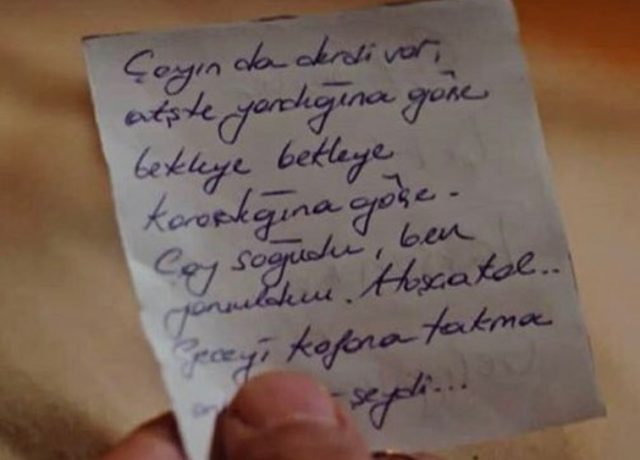 Çayın da derdi var,
ateşte yandığına göre
bekleye bekleye
karardığına göre.
Çay soğudu, ben
yoruldum. Hoşçakal..
Geceyi kafana takma
seydi...